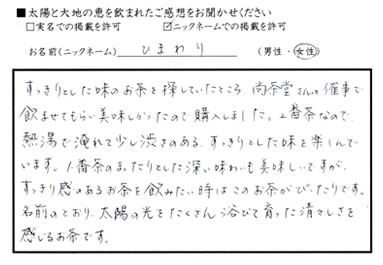 ■太陽と大地の恵を飲まれたご感想をお聞かせください
□実名での掲載を許可 ☑ニックネームでの掲載を許可
お名前(ニックネーム) ひまわり (男性・女性)
すっきりとした味のお茶を探していたところ、尚茶堂さんの催事で
飲ませてもらい美味しかたので購入しました。2番茶なので、
熱湯で淹れて少し渋さのある、すっきりとした味を楽しんで
います。1番茶のまったりとした深い味わいも美味しいですが、
すっきり感のあるお茶を飲みたい時はこのお茶がぴったりです。
名前のとおり、太陽の光をたくさん浴びて育った清々しさを
感じるお茶です。